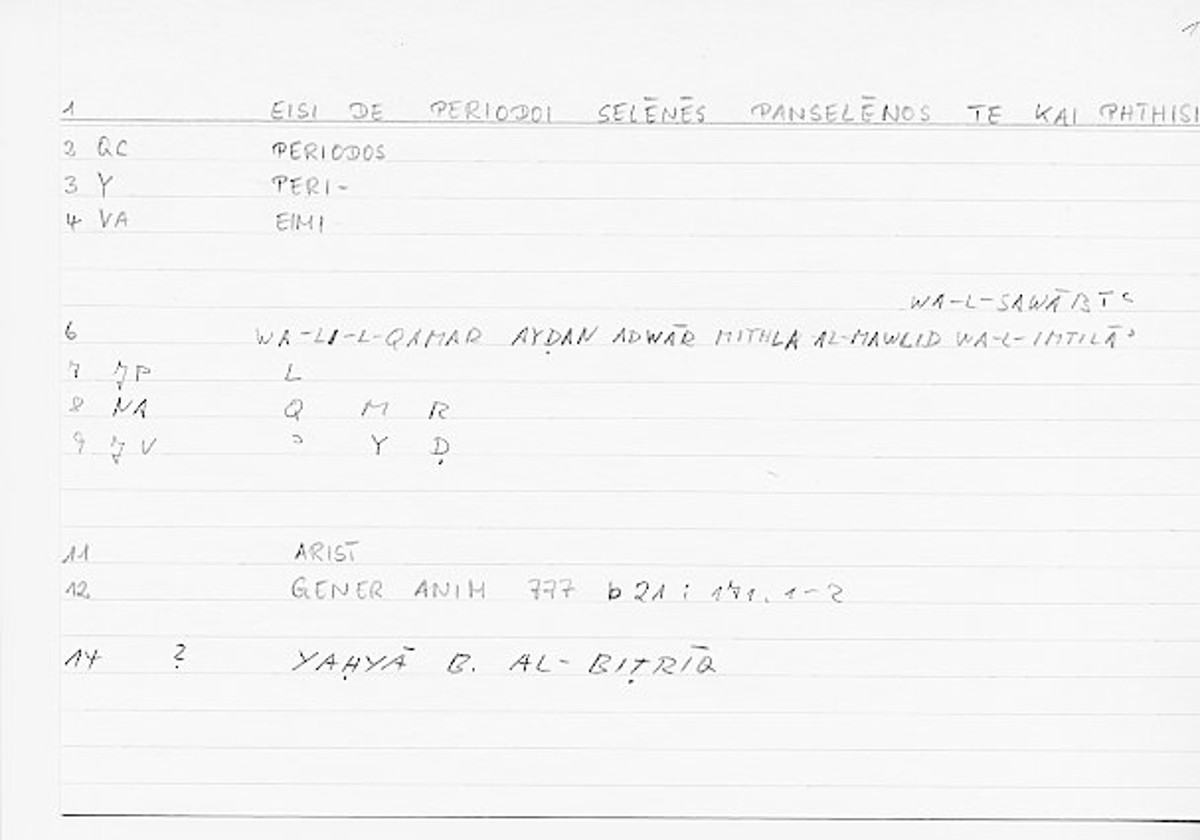 1
1 EISI DE PERIODOI SELĒNĒS PANSELĒNOS TE KAI PHTHISI
2 QC PERIODOS
3 Y PERI-
4 VA EIMI
WA-L-SAWĀBIʿ
6 WA-LI-L-QAMAR AYḌAN ADWĀR MITHLA AL-MAWLID WA-L-IMTILĀʾ
7 JP L
8 NA Q M R
9 JV ʾ Y Ḍ
11 ARIST
12 GENER ANIM 777 b 21 : 171. 1-2
14 ? YAḤYĀ B. AL-BIṬRĪQ